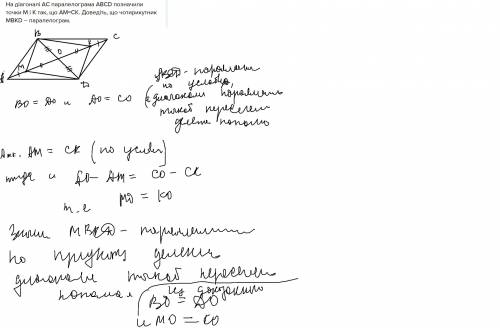 На діагоналі AC паралелограма ABCD позначили
точки M і K так, що AM=CK. Доведіть, що чотирикутник
MBKD – паралелограм.
B C
M O K
D
ABCD - параллел
по условию,
BO = DO и AO = CO (диагонали параллел
точкой пересечен
делятся пополам
AM = CK (по услов)
тогда и AO - AM = CO - CK
т.е MO = KO
Значит MBKD - параллелограмм
по признаку деления
диагонали точкой пересечен
пополам из доказанного
BO = DO
и MO = KO